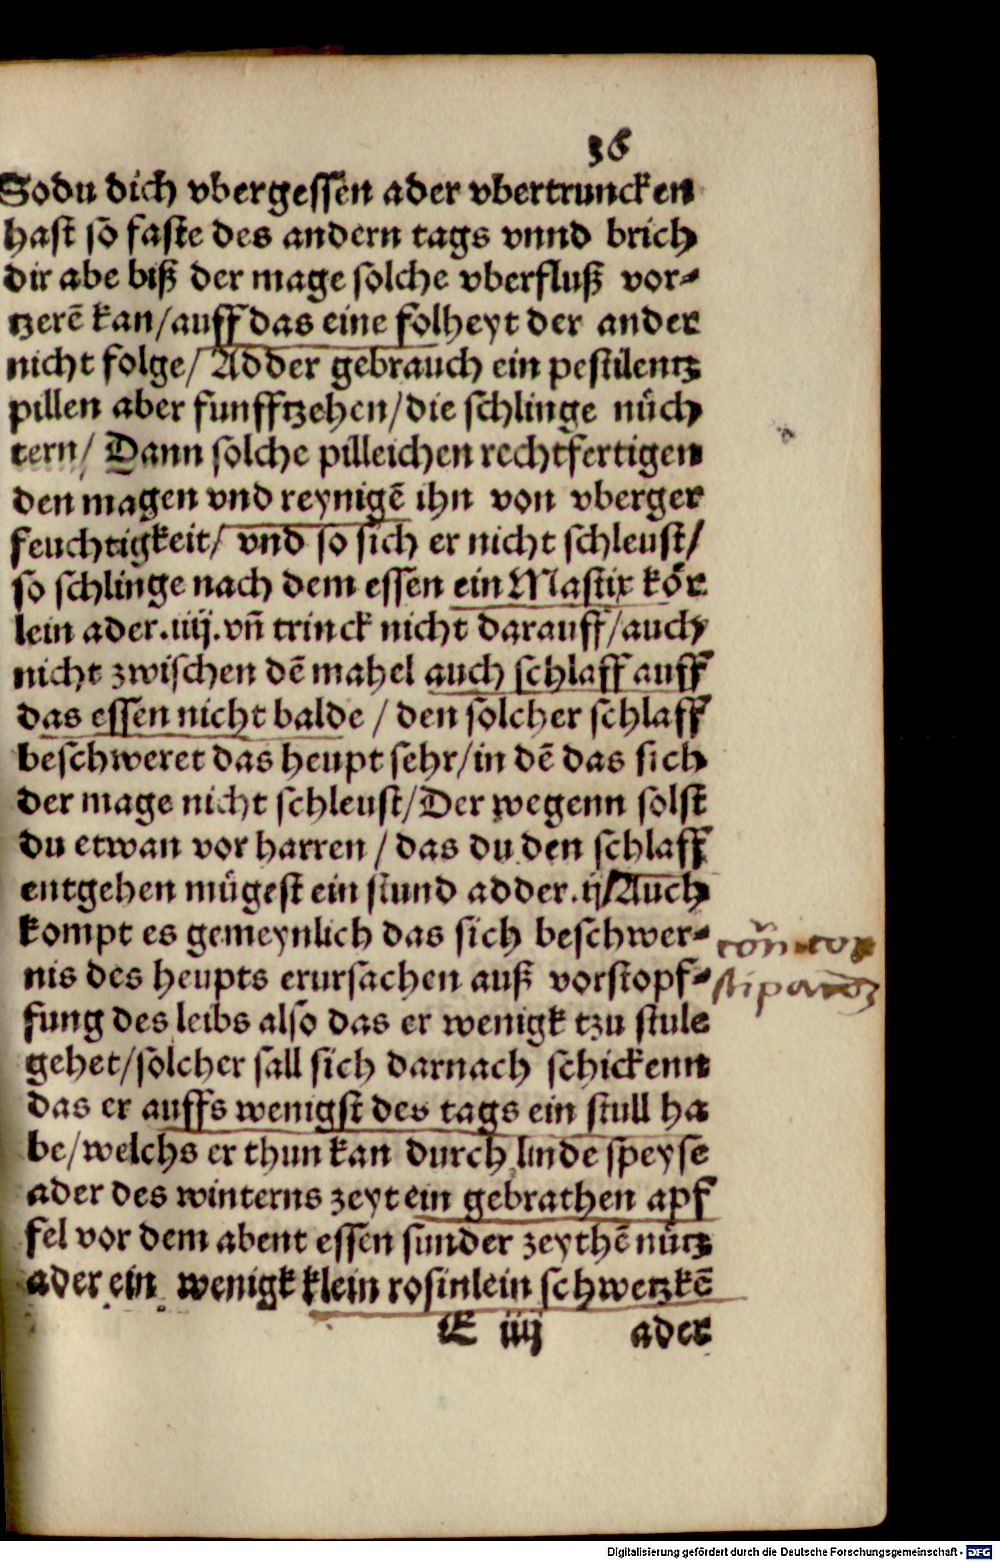 36
Sodu dich vbergessen ader vbertruncken
hast so faste des andern tags vnnd brich
dir abe biß der mage solche vberfluß vor⸗
tzerē kan/auff das eine folheyt der ander
nicht folge/ Adder gebrauch ein pestilentz
pillen aber funfftzehen/die schlinge nüch
tern/ Dann solche pilleichen rechtfertigen
den magen vnd reynigē ihn von vberger
feuchtigkeit/ vnd so sich er nicht schleust/
so schlinge nach dem essen ein Mastix kör
lein ader.iiij.vn̄ trinck nicht darauff/auch
nicht zwischen dē mahel auch schlaff auff
das essen nicht balde / den solcher schlaff
beschweret das heupt sehr/in dē das sich
der mage nicht schleust/Der wegenn solst
du etwan vor harren / das du den schlaff
entgehen mügest ein stund adder.ij/Auch
kompt es gemeynlich das sich beschwer⸗
nis des heupts erursachen auß vorstopf⸗
fung des leibs also das er wenigk tzu stule
gehet/solcher sall sich darnach schickenn
das er auffs wenigst des tags ein stull ha
be/welchs er thun kan durch linde speyse
ader des winterns zeyt ein gebrathen apf
fel vor dem abent essen sunder zeythē nütz
ader ein wenigk klein rosinlein schwetzkē
E iiij ader
Digitalisierung gefördert durch die Deutsche Forschungsgemeinschaft - DFG